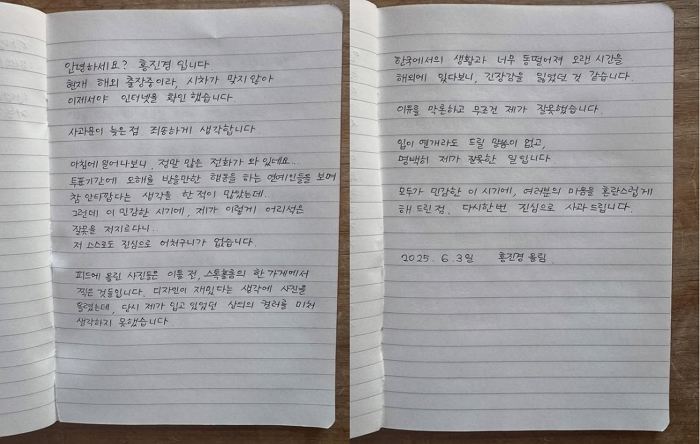 안녕하세요? 홍진경 입니다
현재 해외 출장중이라, 시차가 맞지않아
이제서야 인터넷을 확인했습니다.
사과문이 늦은점 죄송하게 생각합니다
아침에 일어나보니, 정말 많은 전화가 와있네요..
투표기간에 오해를 받을만한 행동을 하는 연예인들을 보며
참 안타깝다는 생각을 한적이 많았는데..
그런데 이 민감한 시기에, 제가 이렇게 어리석은
잘못을 저지르다니..
저 스스로도 진심으로 어처구니가 없습니다.
피드에 올린 사진들은 이틀 전, 스톡홀름의 한 가게에서
찍은 것들입니다. 디자인이 재밌다는 생각에 사진을
올렸는데, 당시 제가 입고있었던 상의의 컬러를 미처
생각하지 못했습니다.
한국에서의 생활과 너무 동떨어져 오랜 시간을
해외에 있다보니, 긴장감을 잃었던 것 같습니다.
이유를 막론하고 무조건 제가 잘못했습니다.
입이 열개라도 드릴 말씀이 없고,
명백히 제가 잘못한 일입니다.
모두가 민감한 이 시기에, 여러분의 마음을 혼란스럽게
해 드린점, 다시한번 진심으로 사과드립니다.
2025. 6. 3일 홍진경 올림